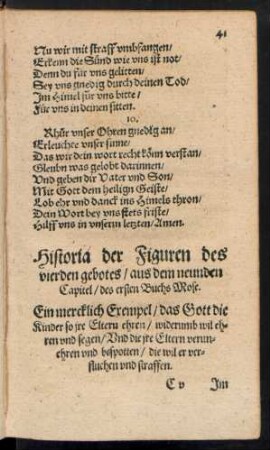 41
Nu wir mit straff vmbfangen/
Erkenn die Sünd wie vns ist not/
Denn du für vns gelitten/
Sey vns gnedig durch deinen Tod/
Im Himel für vns bitte/
Für vns in deinen sitten.
10.
Rhür vnser Ohren gnedig an/
Erleuchte vnser sinne/
Das wir dein wort recht könn verstan/
Gleubn was gelobt darinnen/
Vnd geben dir Vater vnd Son/
Mit Gott dem heilign Geiste/
Lob ehr vnd danck ins Himels thron/
Dein Wort bey vns stets friste/
Hilff vns in vnserm letzten/Amen.
Historia der Figuren des
vierden gebotes/ aus dem neunden
Capitel/ des ersten Buchs Mose.
Ein mercklich Exempel/ das Gott die
Kinder so jre Eltern ehren/ widerumb wil eh-
ren vnd segen/ Vnd die jre Eltern verun-
ehren vnd bespotten/ die wil er ver-
fluchen vnd straffen.
C v Im